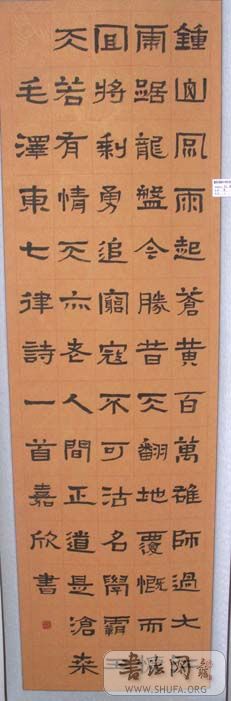 鍾山風雨起蒼黃百萬雄師過大
虎踞龍盤今勝昔天翻地覆慨而
宜將剩勇追窮寇不可沽名學霸
天若有情天亦老人間正道是滄桑
毛澤東七律詩一首嘉欣書
書法网
WWW.SHUFA.ORG